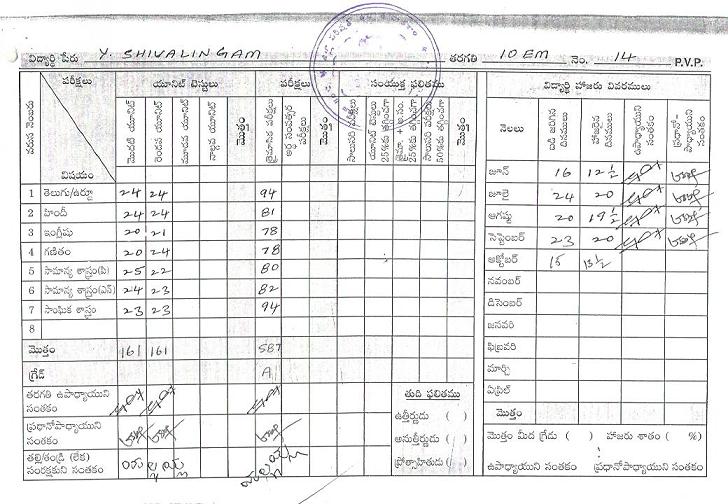 విద్యార్థి పేరు Y. SHIVALINGAM తరగతి 10 EM నెం. 14 P.V.P.
వరుస నెంబరు పరీక్షలు విషయం యూనిట్ టెస్టులు పరీక్షలు సంయుక్త ఫలితము
మొదటి యూనిట్ రెండవ యూనిట్ మూడవ యూనిట్ నాల్గవ యూనిట్ మొత్తం త్రైమాసిక పరీక్షలు అర్థ సంవత్సర పరీక్షలు మొత్తం సాలుసరి పరీక్షలు యూనిట్ టెస్టులు 25%కు తగ్గించగా 25%కు తగ్గించగా సాలుసరి పరీక్షలు 50%కు తగ్గించగా మొత్తం
1 తెలుగు/ఉర్దూ 24 24 94
2 హిందీ 24 24 81
3 ఇంగ్లీషు 20 21 78
4 గణితం 20 24 78
5 సామాన్య శాస్త్రం(పి) 25 22 80
6 సామాన్య శాస్త్రం(ఎన్) 24 23 82
7 సాంఘిక శాస్త్రం 23 23 94
8
మొత్తం 161 161 587
గ్రేడ్ A
తరగతి ఉపాధ్యాయుని సంతకం
ప్రధానోపాధ్యాయుని సంతకం
తల్లి/తండ్రి (లేక) సంరక్షకుని సంతకం
తుది ఫలితము
ఉత్తీర్ణుడు ( )
అనుత్తీర్ణుడు ( )
ప్రోత్సాహితుడు ( )
విద్యార్థి హాజరు వివరములు
నెలలు బడి జరిగిన దినములు హాజరైన దినములు ఉపాధ్యాయుని సంతకం ప్రధానో-పాధ్యాయుని సంతకం
జూన్ 16 12½
జూలై 24 20
ఆగష్టు 20 19½
సెప్టెంబర్ 23 20
అక్టోబర్ 15 13½
నవంబర్
డిసెంబర్
జనవరి
ఫిబ్రవరి
మార్చి
ఏప్రిల్
మొత్తం
మొత్తం మీద గ్రేడు ( ) హాజరు శాతం ( %)
ఉపాధ్యాయుని సంతకం ప్రధానోపాధ్యాయుని సంతకం